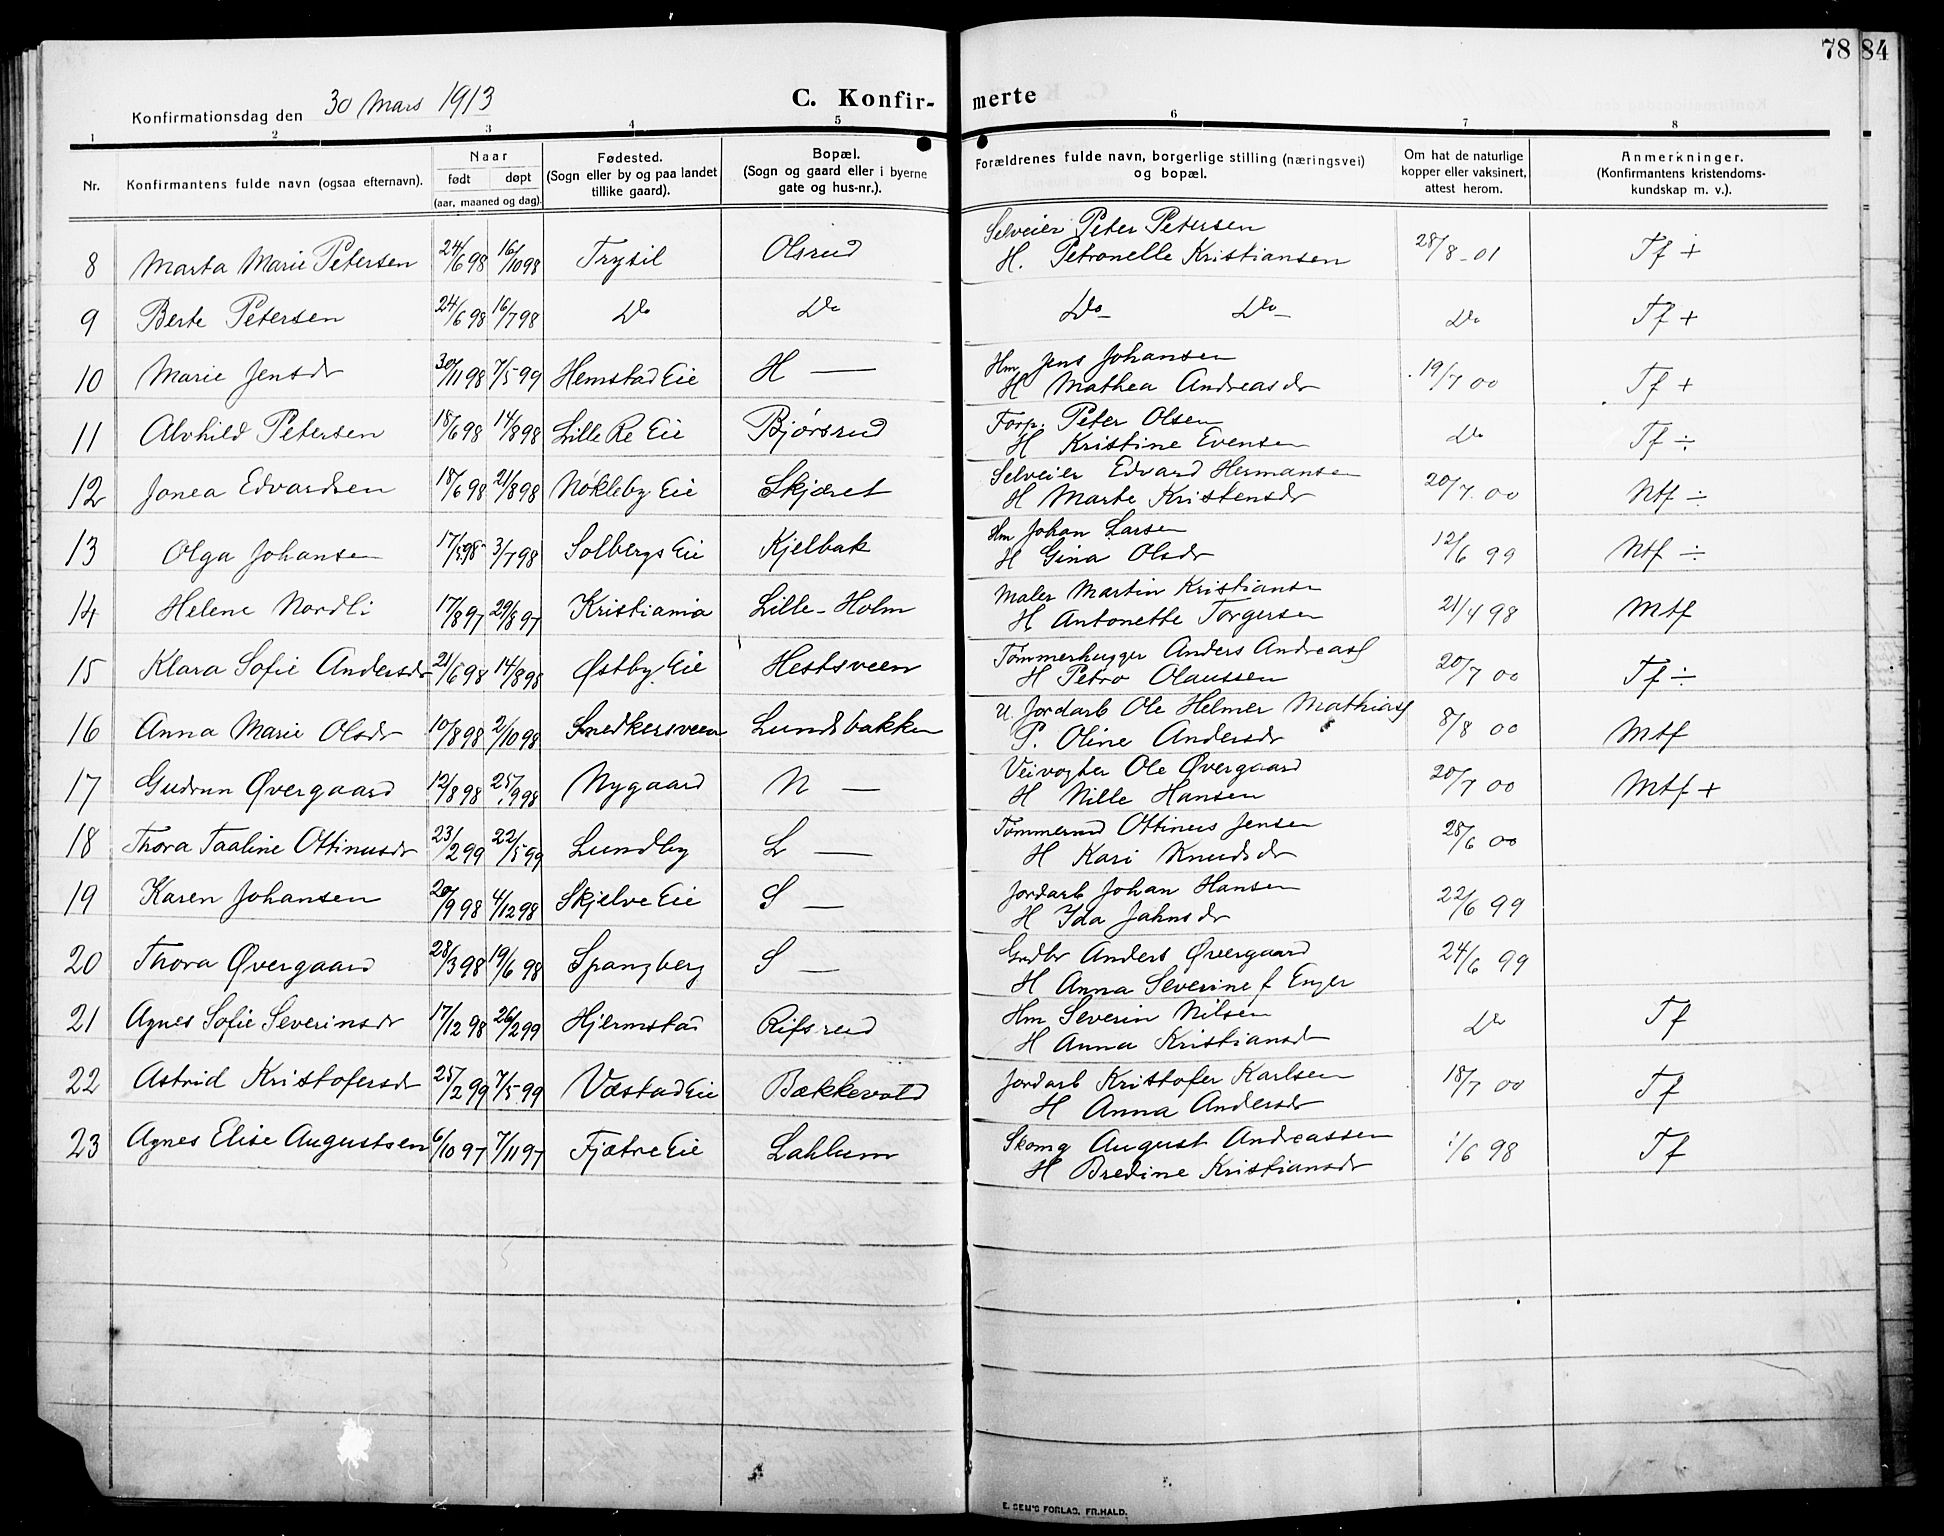 78 84
Konfirmationsdag den 30 Mars 1913 C. Konfir- merte
1 2 3 4 5 6 7 8
Nr. Konfirmantens fulde navn (ogsaa efternavn). Naar født døpt (aar, maaned og dag). Fødested. (Sogn eller by og paa landet tillike gaard). Bopæl. (Sogn og gaard eller i byerne gate og hus-nr.). Forældrenes fulde navn, borgerlige stilling (næringsvei) og bopæl. Om hat de naturlige kopper eller vaksinert, attest herom. Anmerkninger. (Konfirmantens kristendoms- kundskap m. v.).
Selveier Peter Petersen
8 Marta Marie Petersen 24/6 98 16/10 98 Trysil Olsrud H. Petronelle Kristiansen 28/8-01 Tf +
9 Berte Petersen 24/6 98 16/7 98 Do Do Do Do Do Tf +
Hm Jens Johansen
10 Marie Jensdr 30/11 98 7/5 99 Hemstad Eie H — H Mathea Andreasdr 19/7 00 Tf +
Forp. Peter Olsen
11 Alvhild Petersen 18/6 98 14/8 98 Lille Re Eie Bjørsrud H Kristine Evensen Do Tf ÷
Selveier Edvard Hermansen
12 Jonea Edvardsen 18/6 98 21/8 98 Nøkleby Eie Skjæret H Marte Kristensdr 20/7 00 Ntf ÷
Hm Johan Larsen
13 Olga Johansen 17/5 98 3/7 98 Solbergs Eie Kjelbak H Gina Olsdr 12/6 99 Ntf ÷
Maler Martin Kristiansen
14 Helene Nordli 17/8 97 29/8 97 Kristiania Lille-Holm H Antonette Torgersen 21/4 98 Mtf
Tømmerhugger Anders Andreass
15 Klara Sofie Andersdr 21/6 98 14/8 98 Østby Eie Hestsveen H Petro Olaussen 20/7 00 Tf ÷
U. Jordarb Ole Helmer Mathiass
16 Anna Marie Olsdr 10/8 98 2/10 98 Snedkersveen Lundsbakken P. Oline Andersdr 8/8 00 Mtf
Veivogter Ole Øvergaard
17 Gudrun Øvergaard 12/8 98 25/9 98 Nygaard N — H Nille Hansen 20/7 00 Mtf +
Tømmermd Ottinus Jensen
18 Thora Taaline Ottinusdr 23/2 99 22/5 99 Lundby L — H Kari Knudsdr 28/6 00
Jordarb Johan Hansen
19 Karen Johansen 20/9 98 4/12 98 Skjelve Eie S — H Ida Jahnsdr 22/6 99
Gudbr Anders Øvergaard
20 Thora Øvergaard 28/3 98 19/6 98 Spangberg S — H Anna Severine f Enger 24/6 99
Hm Severin Nilsen
21 Agnes Sofie Severinsdr 17/12 98 26/2 99 Hjermstad Rifsrud H Anna Kristiansdr Do Tf
Jordarb Kristofer Karlsen
22 Astrid Kristofersdr 25/2 99 7/5 99 Væstad Eie Bækkevold H Anna Andersdr 18/7 00 Tf
Skomg August Andreassen
23 Agnes Elise Augustsen 6/10 97 7/11 97 Fjætre Eie Lahlum H Bredine Kristiansdr 1/6 98 Tf
E. SEM'S FORLAG, FR.HALD.